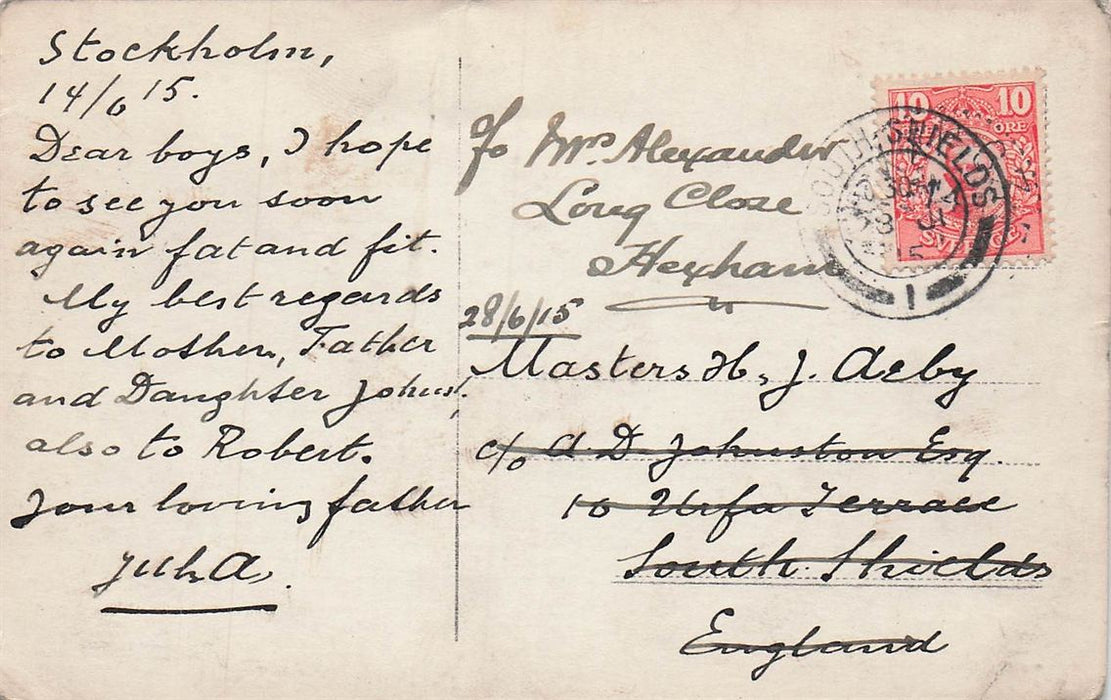 Stockholm,
14/6 15.
Dear boys, I hope
to see you soon
again fat and fit.
My best regards
to Mother, Father
and Daughter Johns!
also to Robert.
Your loving father
c/o Mrs Alexander
Long Close
Hexham
28/6/15
Masters H, J. Aeby
c/o A. D. Johnston Esq.
16 Urfa Terrace
South Shields
England
10 10
ÖRE
SOUTH SHIELDS
1